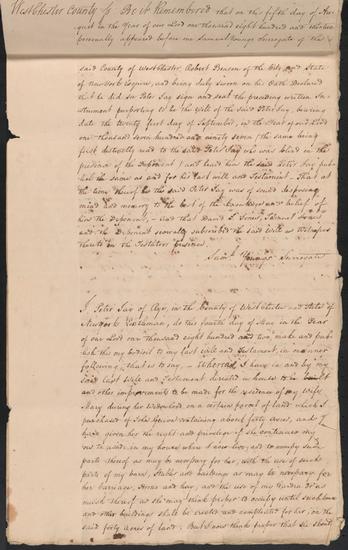 West Chester County ss Be it Remembered that on the fifth day of Au
gust in the Year of our Lord one thousand eight hundred and
personally appeared before me Samuel Youngs Surrogate of the
said County of Westchester Robert Benson of the City and State
of New York Esquire, and being duly sworn on his Oath Declared
that he did see Peter Jay sign and seal the preceding written In-
strument purporting to be the Will of the said Peter Jay, bearing
date the twenty first day of September, in the Year of our Lord
one thousand seven hundred and ninety seven (the same being
first distinctly read to the said Peter Jay who was blind in the
presence of the Deponent) and heard him the said Peter Jay pub-
lish the same as and for his last will and Testament. That at
the time thereof he the said Peter Jay was of sound disposing
mind and memory to the best of the knowledge and belief of
him the Deponent, And that David S. Jones, Samuel Jones
and the Deponent severally subscribed the said Will as Witnesses
thereto in the Testators presence.
Saml. Youngs Surrogate
I Peter Jay of Rye, in the County of West Chester and State of
New York Gentleman, do this fourth day of May in the Year
of our Lord one thousand eight hundred and two make and pub-
lish this my Codicil to my last will and Testament, in manner
following, that is to say, Whereas I have in and by my
said last Will and Testament directed a house to be built
and other improvements to be made for the residence of my Wife
Mary during her Widowhood on a certain parcel of land which I
purchased of containing about forty acres, and I
have given her the right and privilege, if she continues my
to reside in my house where I now live, and to occupy such
parts thereof as may be necessary for her, with the use of such
parts of my barn, Stables and buildings as may be necessary for
her Carriage, Horses and hay, and the use of my Garden or as
much thereof as she may think proper to occupy until such house
and other buildings shall be erected and completed for her, on the
said forty acres of land: But I now think proper that she should